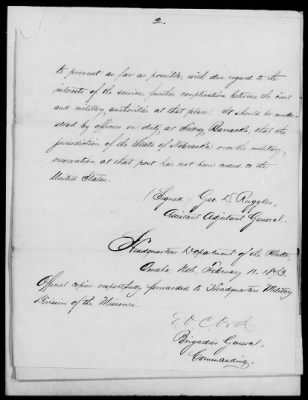 2.
to prevent as far as possible, with due regard to the
interests of the service, further complication between the civil
and military authorities at that place. It should be under-
stood by officers on duty at Sidney Barracks, that the
jurisdiction of the State of Nebraska over the military
reservation at that post has not been ceded to the
United States.
(Signed) Geo. D. Ruggles,
Assistant Adjutant General.
Headquarters Department of the Platte
Omaha, Neb. February 11. 1873.
Official copies respectfully forwarded to Headquarters Military
Division of the Missouri.
E O C Ord
Brigadier General.
Commanding.